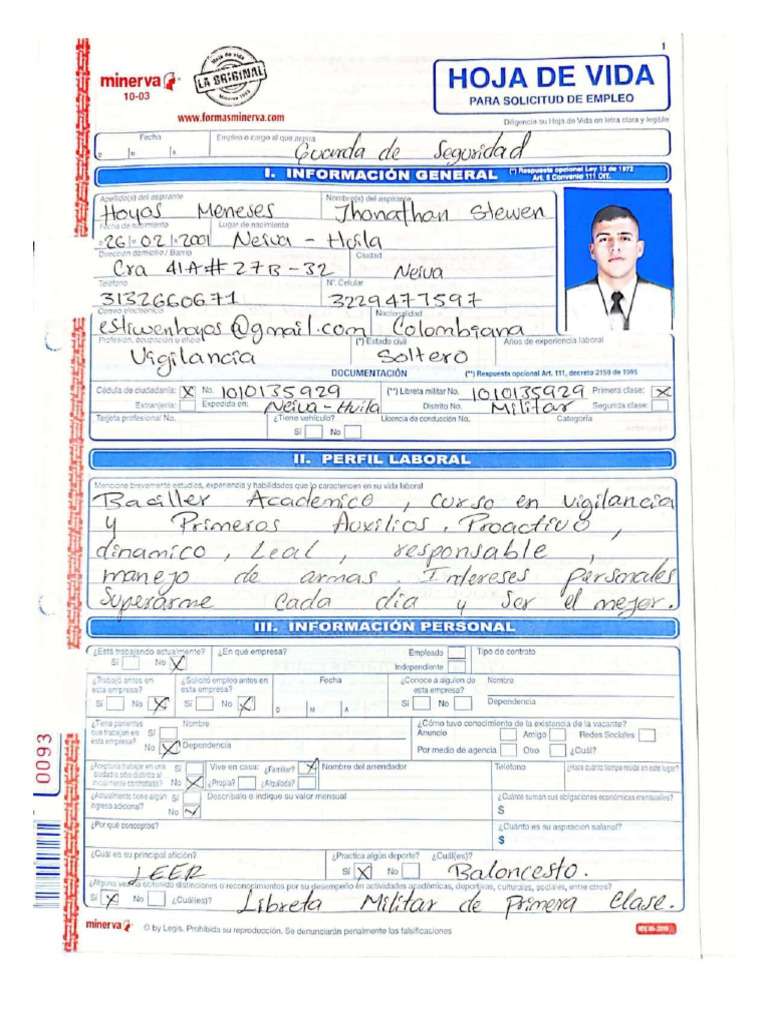 1
minerva
10-03
Hoja de vida
LA ORIGINAL
Minerva 1003
www.formasminerva.com
HOJA DE VIDA
PARA SOLICITUD DE EMPLEO
Diligencie su Hoja de Vida en letra clara y legible
Fecha
D M A
Empleo o cargo al que aspira
Guarda de Seguridad
I. INFORMACIÓN GENERAL
(*) Respuesta opcional Ley 13 de 1972
Art. 8 Convenio 111 OIT.
Apellido(s) del aspirante Nombre(s) del aspirante
Hoyos Meneses Jhonathan Stewen
Fecha de nacimiento Lugar de nacimiento
26 02 2001 Neiva - Huila
Dirección domicilio / Barrio Ciudad
Cra 41A # 27B - 32 Neiva
Teléfono N°. Celular
3132660671 3229477597
Correo electrónico Nacionalidad
estiwenhoyos@gmail.com Colombiana
Profesión, ocupación u oficio (*) Estado civil Años de experiencia laboral
Vigilancia Soltero
DOCUMENTACIÓN (**) Respuesta opcional Art. 111, decreto 2150 de 1995
Cédula de ciudadanía: X No. 1010135929 (**) Libreta militar No. 1010135929 Primera clase: X
Extranjería: Expedida en: Neiva - Huila Distrito No. Militar Segunda clase:
Tarjeta profesional No. ¿Tiene vehículo? Licencia de conducción No. Categoría
Sí No
II. PERFIL LABORAL
Mencione brevemente estudios, experiencia y habilidades que lo caractericen en su vida laboral
Baciller Academico, curso en vigilancia
y Primeros Auxilios. Proactivo,
dinamico, Leal, responsable,
manejo de armas. Intereses Personales
Superarme cada dia y Ser el mejor.
III. INFORMACIÓN PERSONAL
¿Está trabajando actualmente? ¿En qué empresa? Empleado Tipo de contrato
Sí No X Independiente
¿Trabajó antes en esta empresa? ¿Solicitó empleo antes en esta empresa? Fecha ¿Conoce a alguien de esta empresa? Nombre
Sí No X Sí No X D M A Sí No Dependencia
¿Tiene parientes que trabajen en esta empresa? Sí Nombre ¿Cómo tuvo conocimiento de la existencia de la vacante?
Anuncio Amigo Redes Sociales
No X Dependencia Por medio de agencia Otro ¿Cuál?
¿Aceptaría trabajar en una ciudad o sitio distinto al inicialmente contratado? Sí No X Vive en casa: ¿Familiar? X Nombre del arrendador Teléfono ¿Hace cuánto tiempo reside en este lugar?
¿Propia? ¿Alquilada?
¿Actualmente tiene algún ingreso adicional? Sí No X Descríbalo o indique su valor mensual ¿Cuánto suman sus obligaciones económicas mensuales?
$
¿Por qué conceptos? ¿Cuánto es su aspiración salarial?
$
¿Cuál es su principal afición? ¿Practica algún deporte? ¿Cuál(es)?
LEER Sí X No Baloncesto.
¿Alguna vez ha obtenido distinciones o reconocimientos por su desempeño en actividades académicas, deportivas, culturales, sociales, entre otros?
Sí X No ¿Cuál(es)? Libreta Militar de Primera Clase.
minerva © by Legis. Prohibida su reproducción. Se denunciarán penalmente las falsificaciones
0093